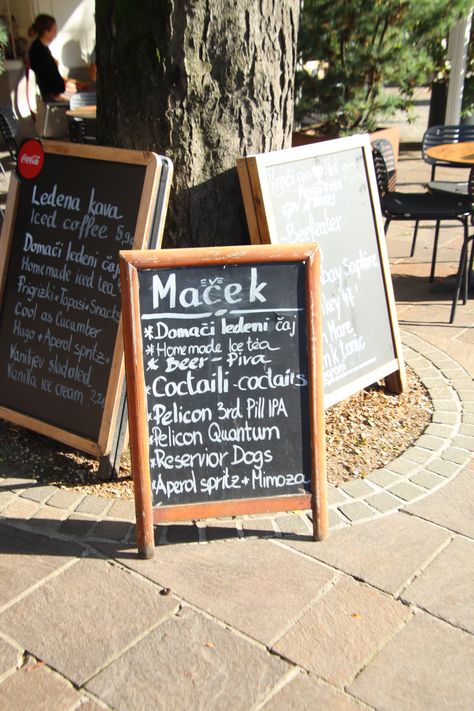 Coca-Cola
Ledena kava
Iced coffee
Domači ledeni čaj
Homemade iced tea
Prigrizki + Tapasi + Snacks
Cool as Cucumber
Hugo + Aperol spritz
Vaniljev sladoled
Vanilla ice cream
EVE
Maček
*Domači ledeni čaj
*Homemade Ice tea
*Beer - Piva
*Coctaili - coctails
*Pelicon 3rd Pill IPA
*Pelicon Quantum
*Reservior Dogs
*Aperol spritz + Mimoza
Beefeater
Bombay Saphire